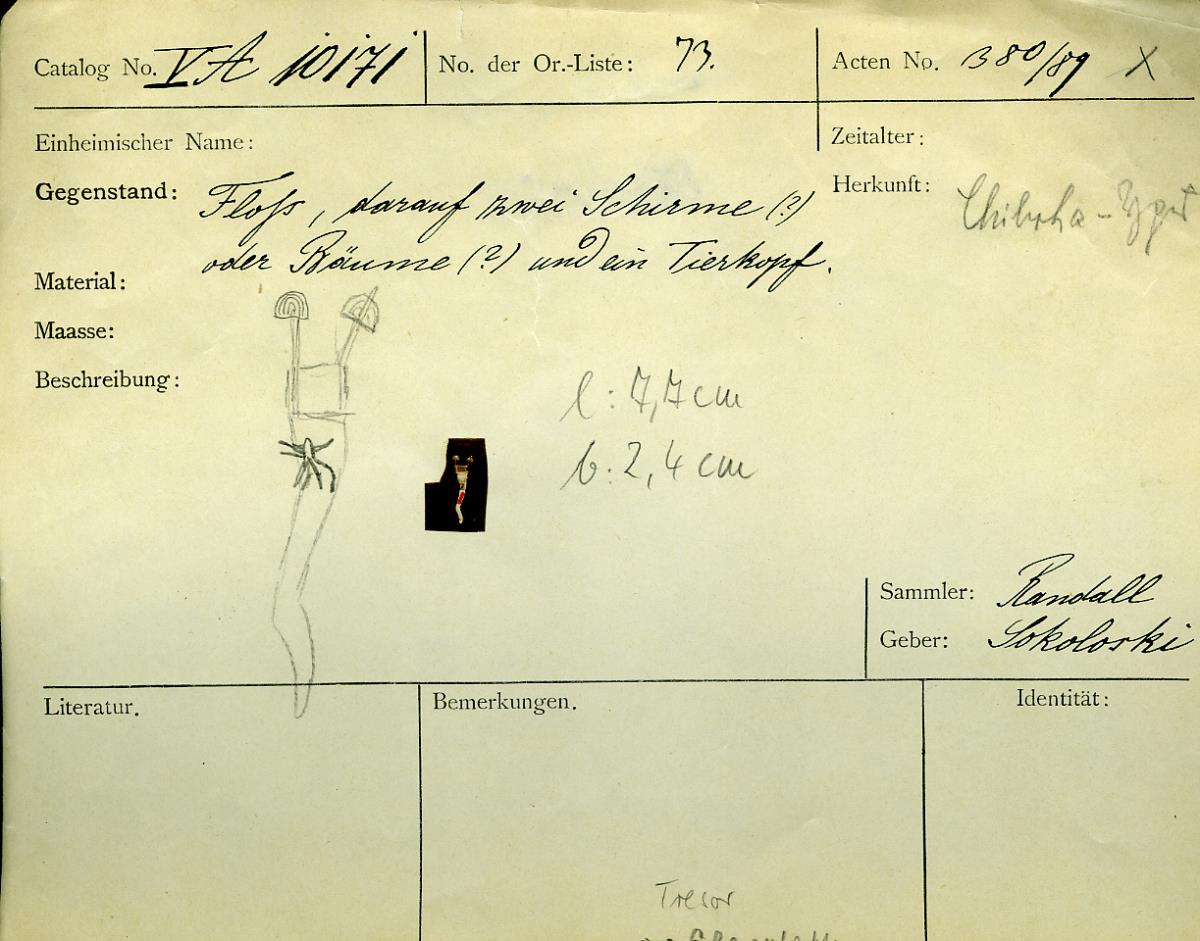 Catalog No. VA 10171
No. der Or.-Liste: 73.
Acten No. 380/89 X
Einheimischer Name:
Zeitalter:
Gegenstand: Floss, darauf zwei Schirme (?)
oder Bäume (?) und ein Tierkopf.
Herkunft: Chibcha -
Material:
Maasse:
Beschreibung:
l: 7,7 cm
b: 2,4 cm
Sammler: Randall
Geber: Sokoloski
Literatur.
Bemerkungen.
Identität:
Tresor